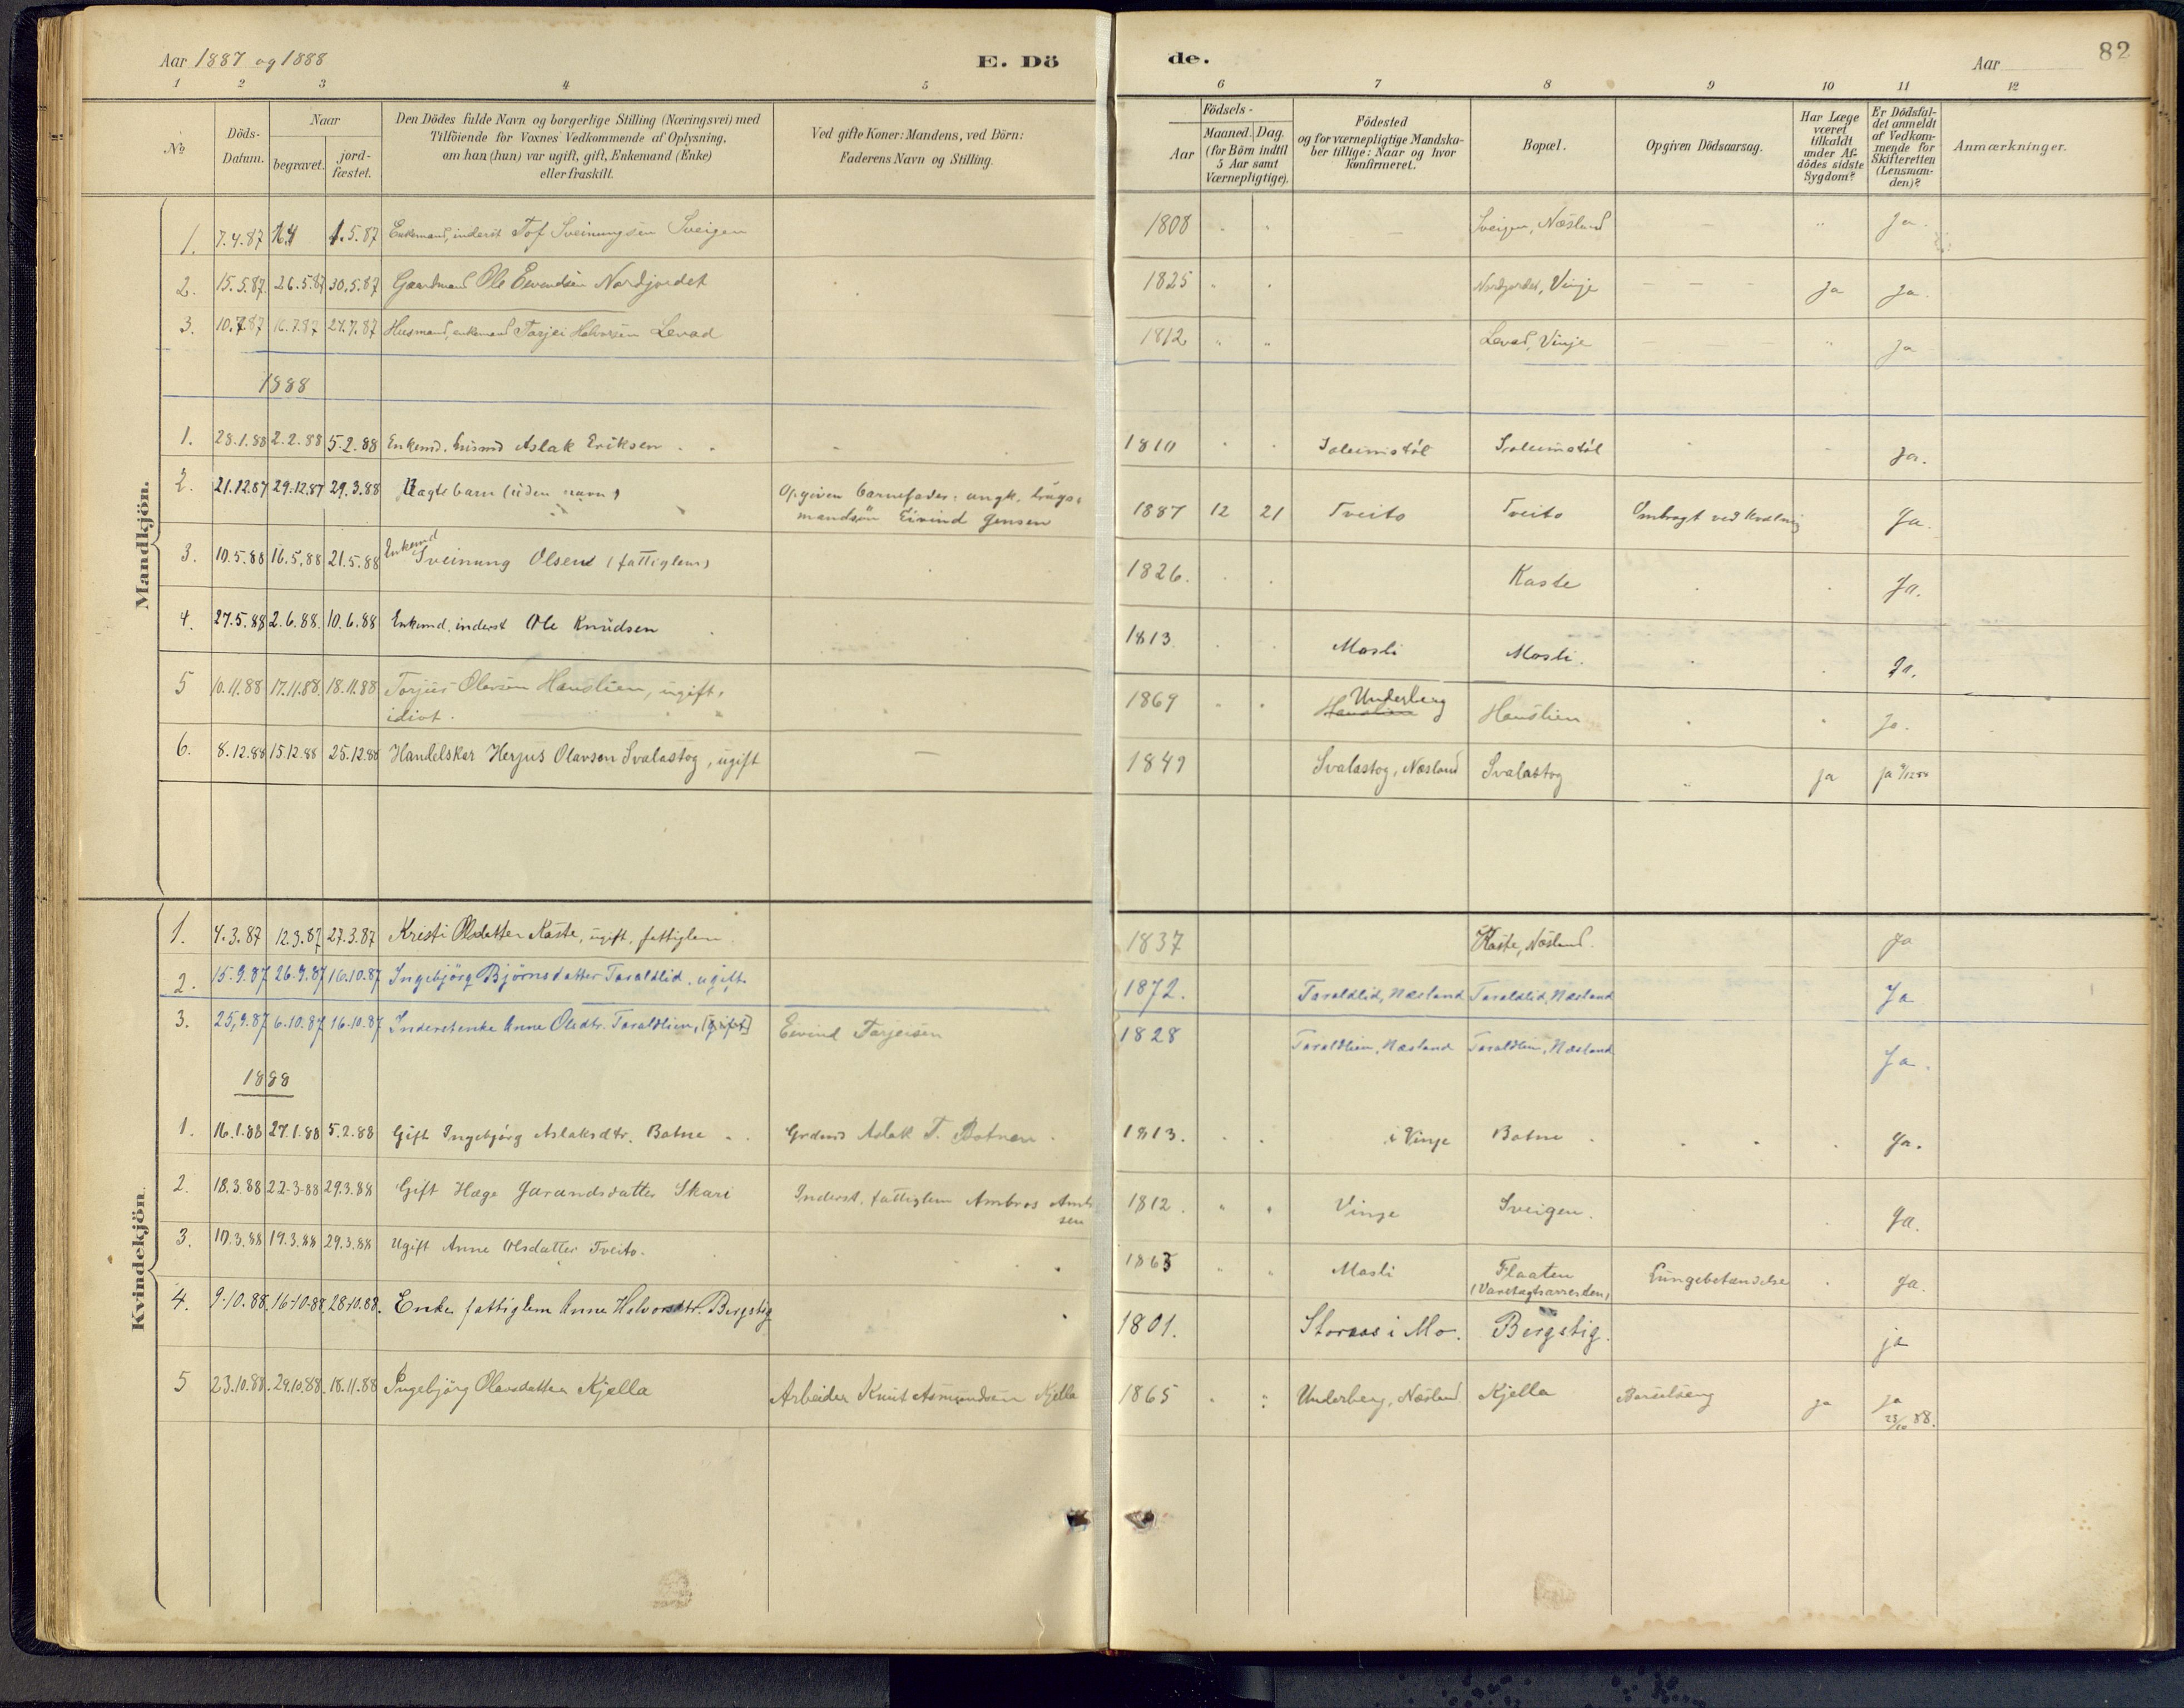 Aar 1887 og 1888 E. Dö de. Aar 82
1 2 3 4 5 6 7 8 9 10 11 12
No
Döds-Datum.
Naar
begravet.
jord-fæstet.
Den Dödes fulde Navn og borgerlige Stilling (Næringsvei) med
Tilföiende for Voxnes Vedkommende af Oplysning,
om han (hun) var ugift, gift, Enkemand (Enke)
eller fraskilt.
Ved gifte Koner: Mandens, ved Börn:
Faderens Navn og Stilling.
Aar
Födsels-
Maaned. Dag.
(for Börn indtil
5 Aar samt
Værnepligtige).
Födested
og for værnepligtige Mandska-
ber tillige: Naar og hvor
konfirmeret.
Bopæl.
Opgiven Dödsaarsag.
Har Læge
været
tilkaldt
under Af-
dödes sidste
Sygdom?
Er Dödsfal-
det anmeldt
af Vedkom-
mende for
Skifteretten
(Lensman-
den)?
Anmærkninger.
Mandkjön.
1. 7.4.87 1.5.87 Enkemand, inderst Tof Sveinungsen Sveigen 1808 " " — Sveigen, Næsland — " Ja.
2. 15.5.87 26.5.87 30.5.87 Gaardmand Ole Nordjordet 1825 " " Nordjordet, Vinje — — — Ja Ja.
3. 10.7.87 16.7.87 24.7.87 Husmand, enkemand Tarjei Halvorsen Levad 1812 " " Levad, Vinje — — — " Ja
1888
1. 28.1.88 2.2.88 5.2.88 Enkemd. husmd Aslak Eriksen 1810 Ja.
2. 21.12.87 29.12.87 29.3.88 Uagte barn (uden navn) Opgiven barnefader: ungk.
mandssön Eivind Jensen 1887 12 21 Tveito Tveito Ombragt ved kvælning Ja.
3. 10.5.88 16.5.88 21.5.88 Enkemd
Sveinung Olsen (fattiglem) 1826. Kaste Ja.
4. 27.5.88 2.6.88. 10.6.88 Enkemd. inderst Ole Knudsen 1813 Mosli Mosli. Ja.
5 10.11.88 17.11.88. 18.11.88 Torjus Olavsen Hauslien, ugift,
idiot. 1869 " " Underberg Hauslien Hauslien " Ja.
6. 8.12.88 15.12.88 25.12.88 Handelskar Herjus Olavson Svalastog, ugift — 1849 Svalastog, Næsland Svalastog ja ja
Kvindekjön.
1. 4.3.87 12.3.87 27.3.87 Kristi Olsdatter Kaste, ugift, fattiglem 1837 Kaste, Næsland. Ja
2. 15.9.87 26.9.87 16.10.87 Ingebjörg Björnsdatter Taraldlid, ugift 1872. Taraldlid, Næsland Taraldlid, Næsland Ja
3. 25,9.87 6.10.87 16.10.87 Inderstenke Anne Olsdtr. Taraldlien, [gift] Eivind Tarjeisen 1828 Taraldlien, Næsland Taraldlien, Næsland Ja.
1888
1. 16.1.88 27.1.88 5.2.88 Gift Ingebjörg Aslaksdtr. Botne Grdmd Aslak T. Botnen 1813. i Vinje Botne Ja.
2. 18.3.88 22-3-88 29.3.88 Gift Hæge Jarandsdatter Skari Inderst, fattiglem Ambros
sen 1812. " " Vinje Sveigen. Ja.
3. 10.3.88 19.3.88 29.3.88 Ugift Anne Olsdatter Tveito. 1863 " " Mosli Flaaten
(Varetægtsarresten) Lungebetændelse Ja.
4. 9-10.88 16-10-88. 28-10.88. Enke, fattiglem Anne Halvorsdtr. Bergstig 1801. Storaas i Mo. Bergstig. ja
5 23.10.88. 29.10.88. 18.11.88 Ingebjörg Olavsdatter Kjella Arbeider Knut Asmundsen Kjella 1865 Underberg, Næsland Kjella Barselseng ja ja
23/10 88.